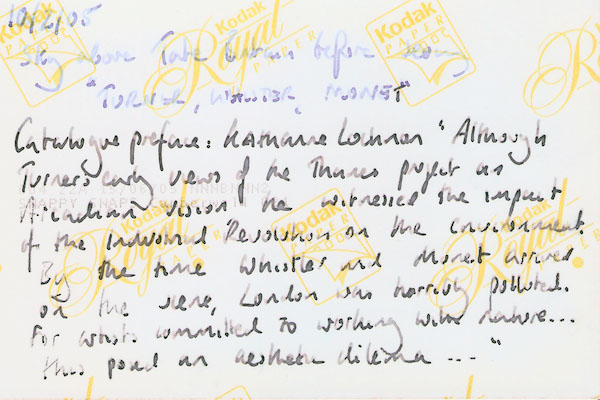 10/2/05
Sky above Tate Britain before seeing
"TURNER, WHISTLER, MONET"
Catalogue preface: Katharine Lochnan "Although
Turner's early views of the Thames project an
Arcadian vision he witnessed the impact
of the Industrial Revolution on the environment.
By the time Whistler and Monet arrived
on the scene, London was horribly polluted.
For artists committed to working with nature...
this posed an aesthetic dilema ...."
Kodak
PAPER
Royal